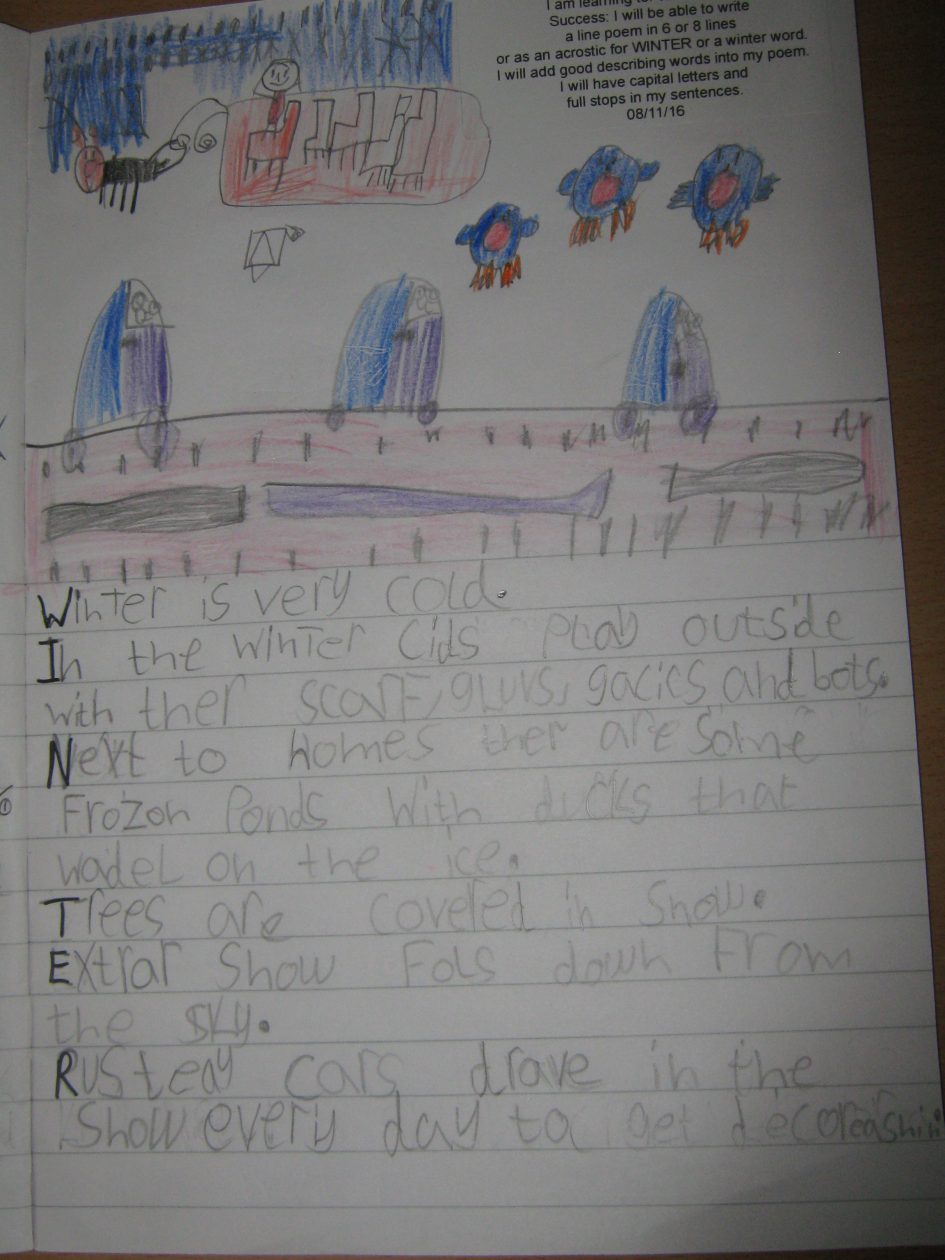 I am learning to
Success: I will be able to write
a line poem in 6 or 8 lines
or as an acrostic for WINTER or a winter word.
I will add good describing words into my poem.
I will have capital letters and
full stops in my sentences.
08/11/16
Winter is very cold.
In the winter cids play outside
with ther scarf, gluvs, gacics and bots.
Next to homes ther are some
Frozon Ponds with ducks that
wadel on the ice.
Trees are covered in snow.
Extrar snow Fols down From
the sky.
Rusteay cars drave in the
snow every day to get